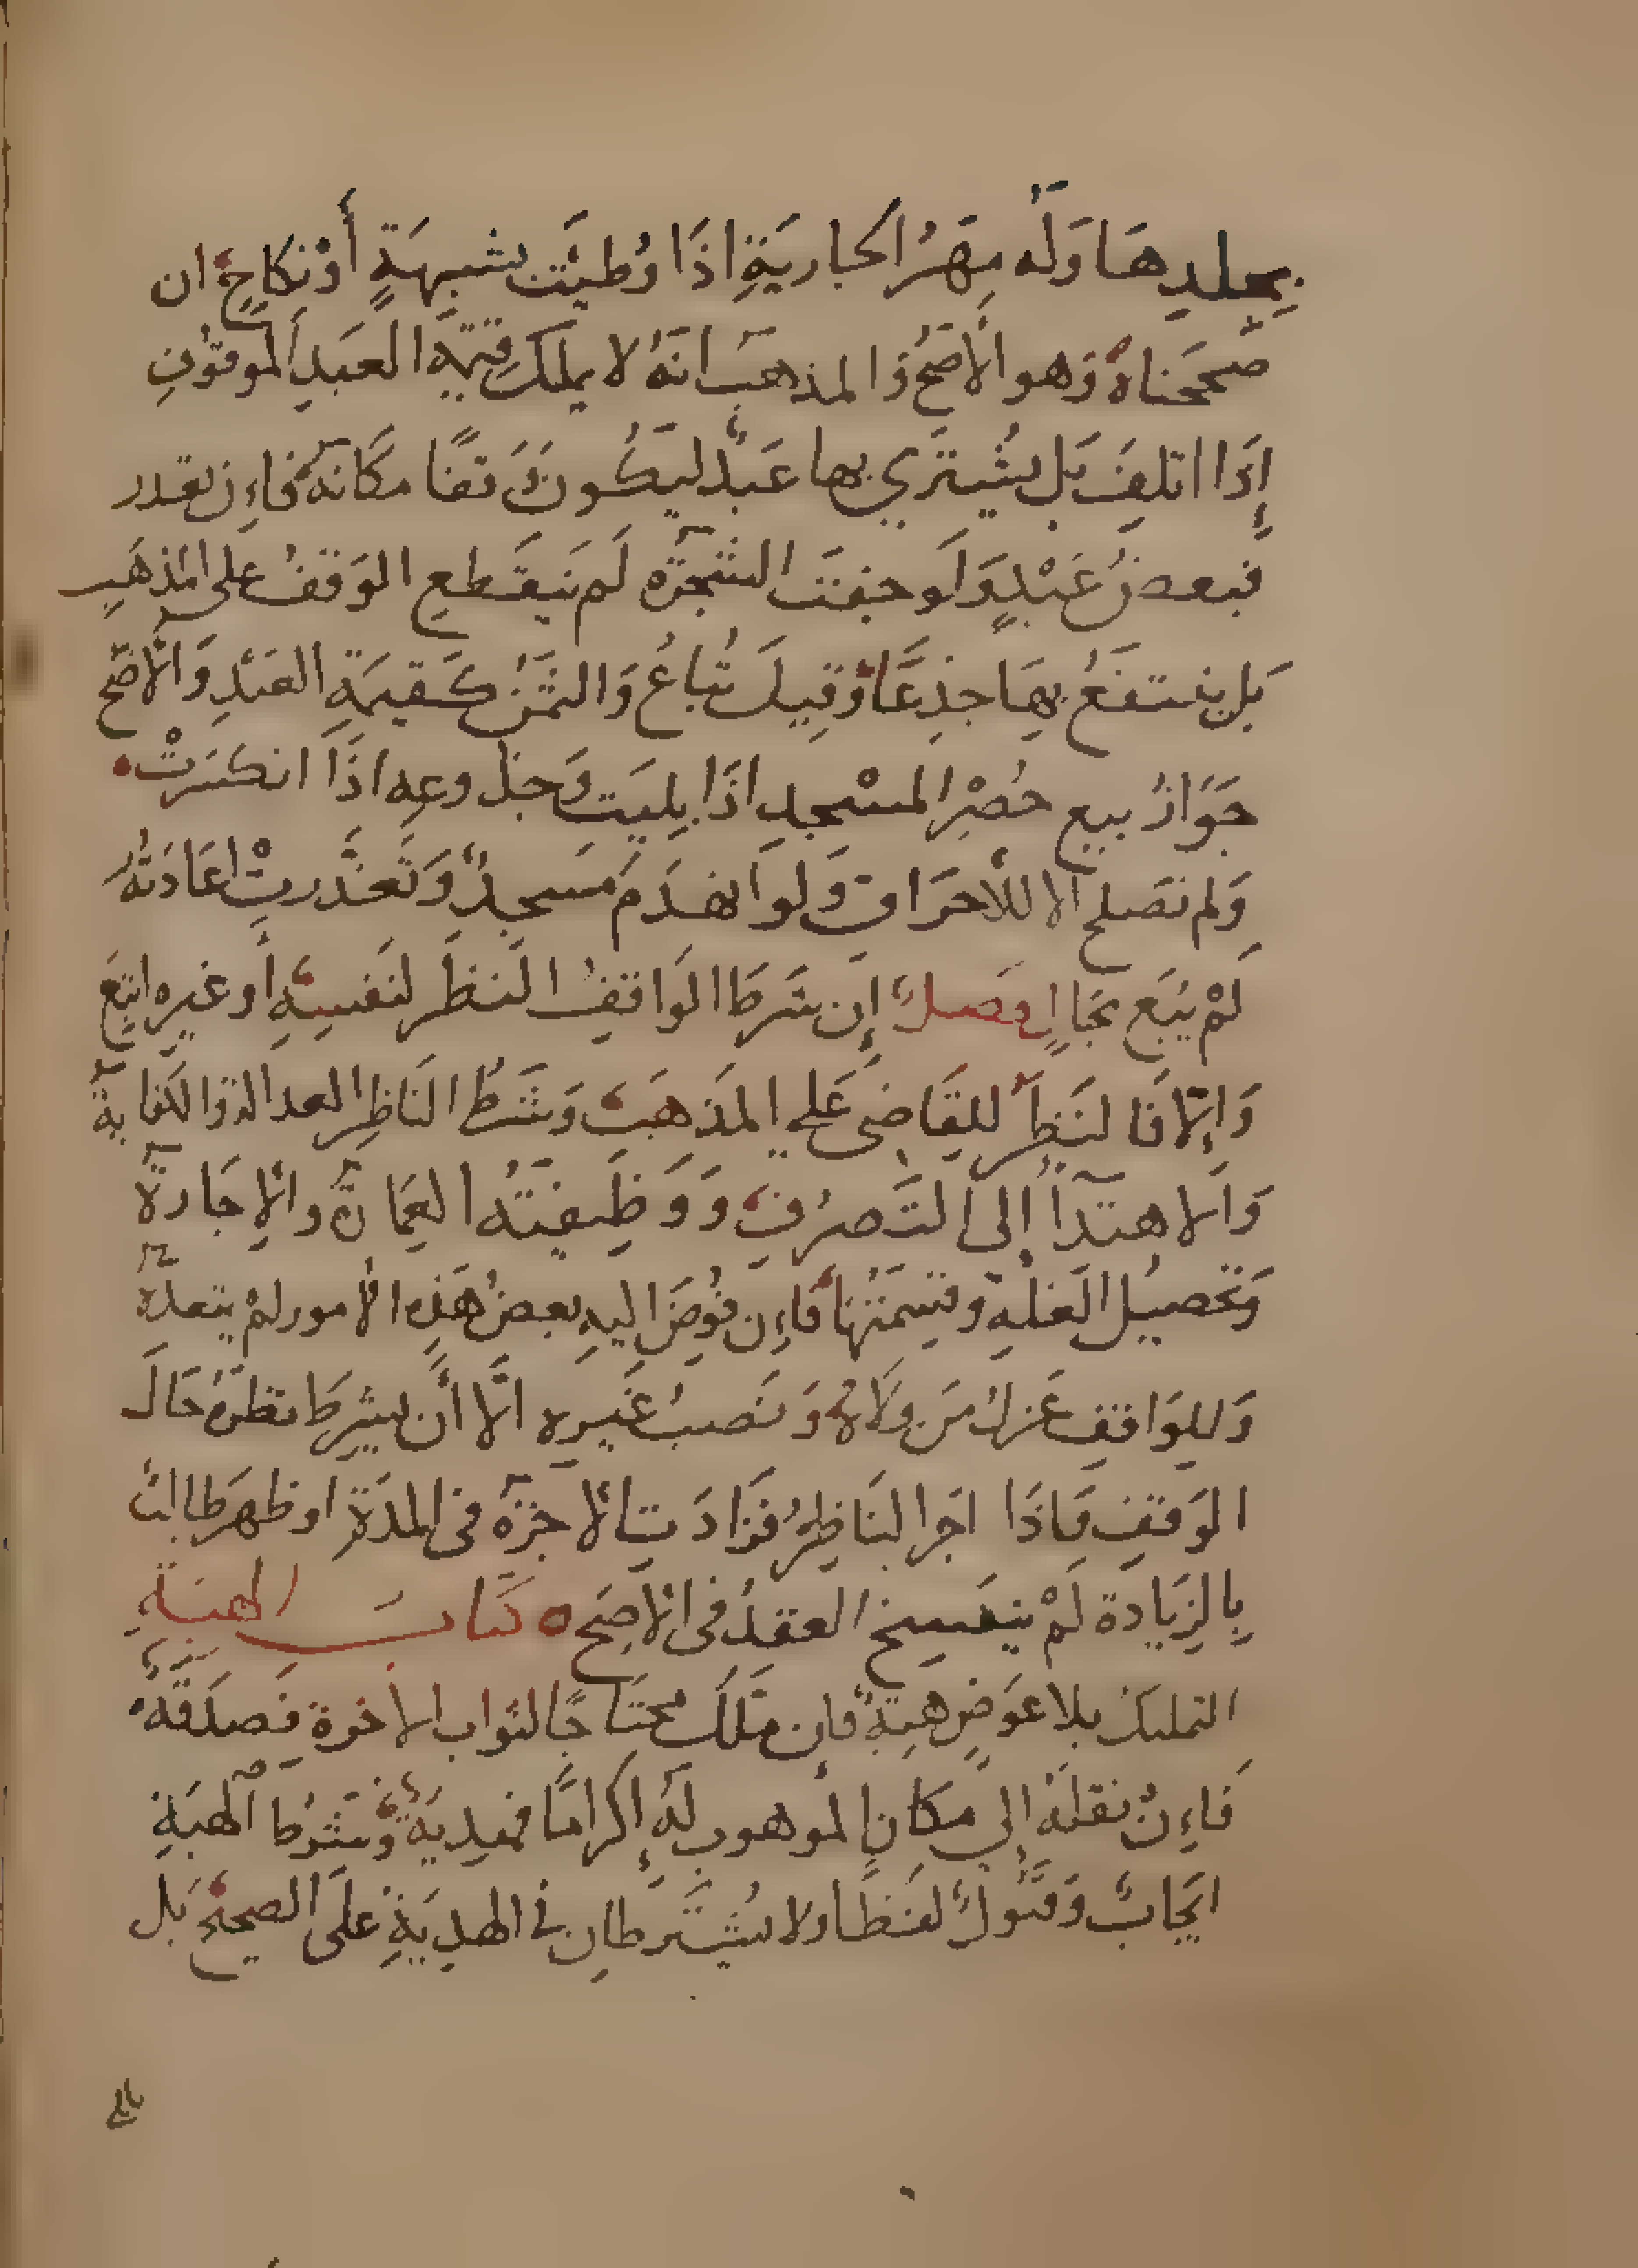 بجلدها وله مهر الجارية اذا وطئت بشبهة أو نكاح ان
صححناه وهو الأصح والمذهب انه لا يملك قيمة العبد الموقوف
إذا اتلف بل يشترى بها عبد ليكون وقفا مكانه فإن تعذر
فبعض عبد ولو جفت الشجرة لم ينقطع الوقف على المذهب
بل ينتفع بها جذعا وقيل تباع والثمن كقيمة العبد والأصح
جواز بيع حصر المسجد اذا بليت وجذوعه اذا انكسرت
ولم تصلح الا للاحراق ولو انهدم مسجد وتعذرت اعادته
لم يبع بحال فصل إن شرط الواقف النظر لنفسه أو غيره اتبع
وإلا فالنظر للقاضى على المذهب وشرط الناظر العدالة والكفاية
والاهتدا إلى التصرف ووظيفته العمارة والإجارة
وتحصيل الغلة وقسمتها فإن فوض اليه بعض هذه الأمور لم يتعده
وللواقف عزل من ولاه ونصب غيره الا أن يشرط نظره حال
الوقف فاذا اجر الناظر فزادت الأجرة فى المدة او ظهر طالب
بالزيادة لم ينفسخ العقد فى الأصح ه كتاب الهبة
التمليك بلا عوض هبة فان ملك محتاجا لثواب الاخرة فصدقة
فإن نقله إلى مكان الموهوب له إكراما فهدية وشرط الهبة
ايجاب وقبول لفظا ولا يشترطان فى الهدية على الصحيح بل